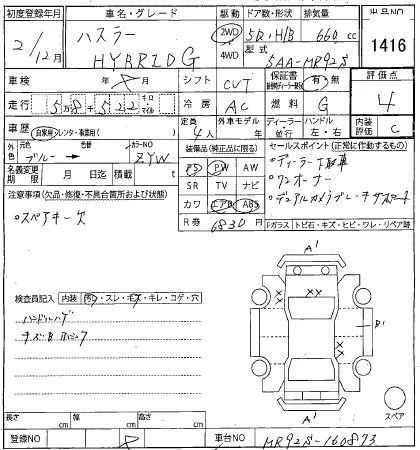 初度登録年月 車名・グレード 駆動 ドア数・形状 排気量 出品NO
2/12月 ハスラー HYBRID G 2WD 4WD 5D,H/B 660cc 1416
型式 5AA-MR92S
車検 年 月 シフト CVT 保証書 有・無 評価点
走行 5万8千522 キロ マイル 冷房 AC 燃料 G 4
車歴 自家用・レンタ・事業用( ) 定員 4人 外車モデル 年 ディーラー 並行 ハンドル 左・右 内装評価 C
外色 元色 ブルー → 色替 カラーNO ZYW
装備品(純正品に限る) セールスポイント(正常に作動するもの)
名義変更期限 月 日迄 積載 t
PS PW AW
SR TV ナビ
カワ エアB ABS
R券 6830円
・ディーラー下取車
・ワンオーナー
・デュアルカメラブレーキサポート
注意事項(欠品・修復・不具合箇所および状態)
・スペアキー欠
Fガラス トビ石・キズ・ヒビ・ワレ・リペア跡
検査員記入 内装 汚れ・スレ・キズ・キレ・コゲ・穴
ハンドルハゲ
A'
XX
XX
B'
A'
スペア
長さ cm 幅 cm 高さ cm
登録NO 車台NO MR92S-160873